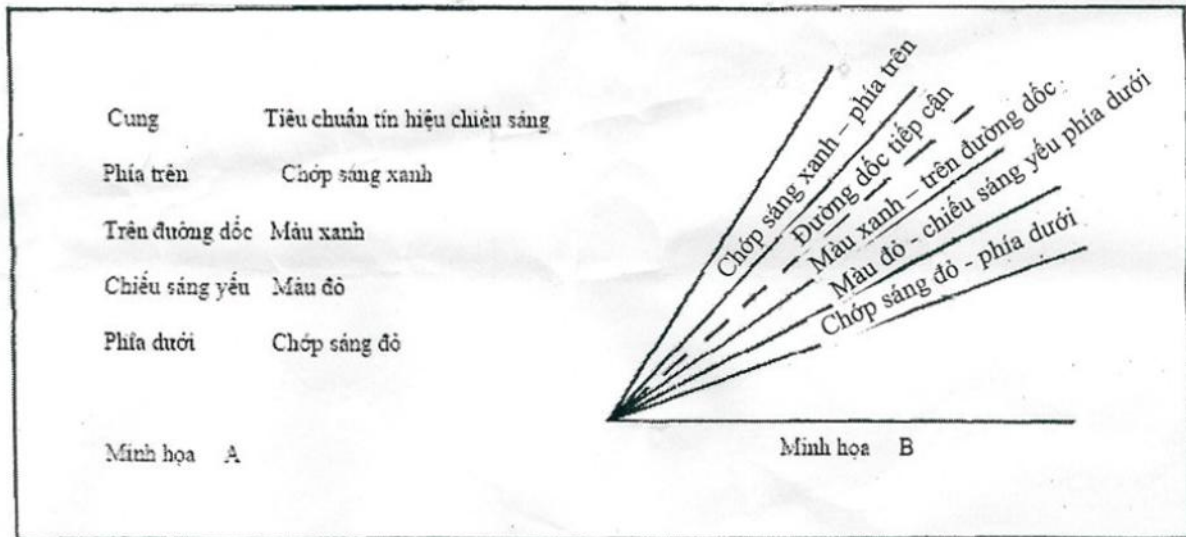 Cung Tiêu chuẩn tín hiệu chiếu sáng
Phía trên Chớp sáng xanh
Trên đường dốc Màu xanh
Chiếu sáng yếu Màu đỏ
Phía dưới Chớp sáng đỏ
Minh họa A
Chớp sáng xanh – phía trên
Đường dốc tiếp cận
Màu xanh – trên đường dốc
Màu đỏ - chiếu sáng yếu phía dưới
Chớp sáng đỏ - phía dưới
Minh họa B